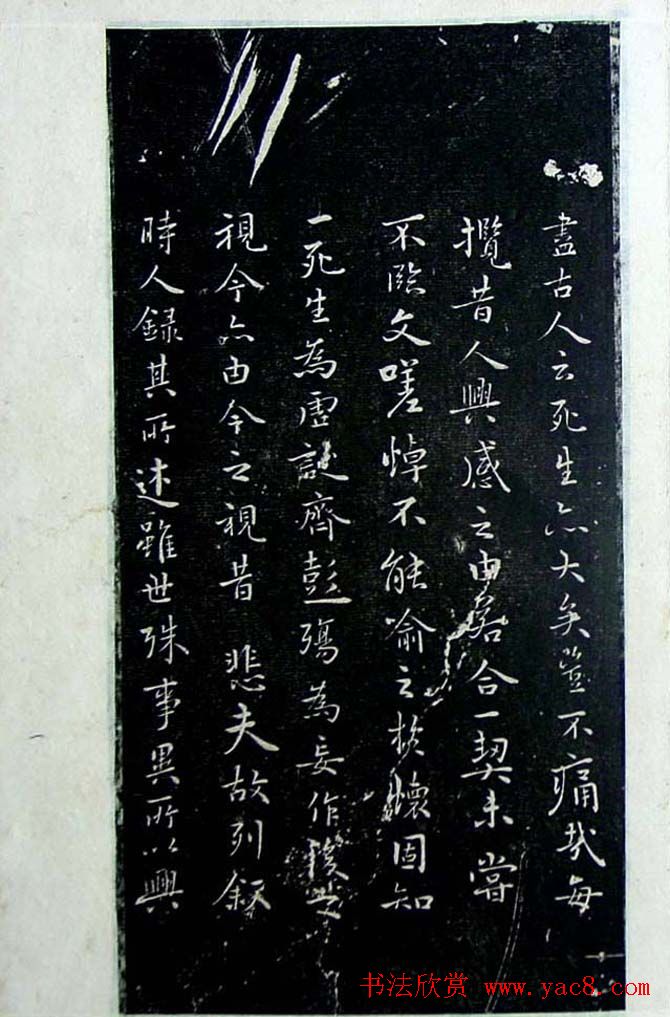 盡古人云死生亦大矣豈不痛哉每
攬昔人興感之由若合一契未嘗
不臨文嗟悼不能喻之於懷固知
一死生為虛誕齊彭殤為妄作後之
視今亦由今之視昔 悲夫故列敘
時人錄其所述雖世殊事異所以興
书法欣赏 www.yac8.com